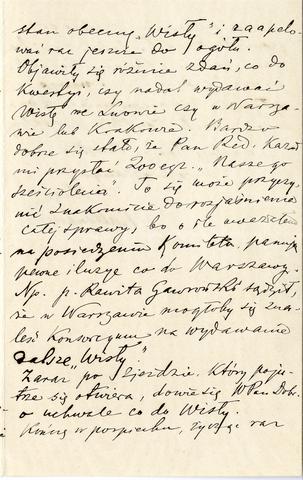 stan obecny „Wisły" i zaapelo-
wać raz jeszcze do ogółu.
Objawiły się różnice zdań, co do
kwestyi, czy nadal wydawać
Wisłę we Lwowie czy w Warsza-
wie lub Krakowie. Bardzo
dobrze się stało, że Pan Red. kazał
mi przysłać 200 egz. „Naszego
sześciolecia". To się może przyczy-
nić znakomicie do rozjaśnienia
całej sprawy, bo o ile
na posiedzeniu Komitetu, panują
pewne iluzye co do Warszawy.
Np. p. Rawita Gawroński sądził,
że w Warszawie mogłoby się zna-
leść konsorcyum na wydawanie
dalsze „Wisły."
Zaraz po Zjeździe, który poju-
trze się otwiera, doniosę WPan Dobr.
o uchwale co do Wisły.
Kończę w pośpiechu, życząc raz